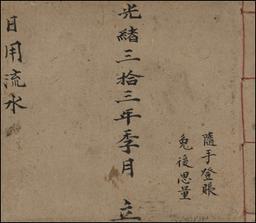 隨手登賬
免後思量
光緒三拾三年季月 立
日用流水